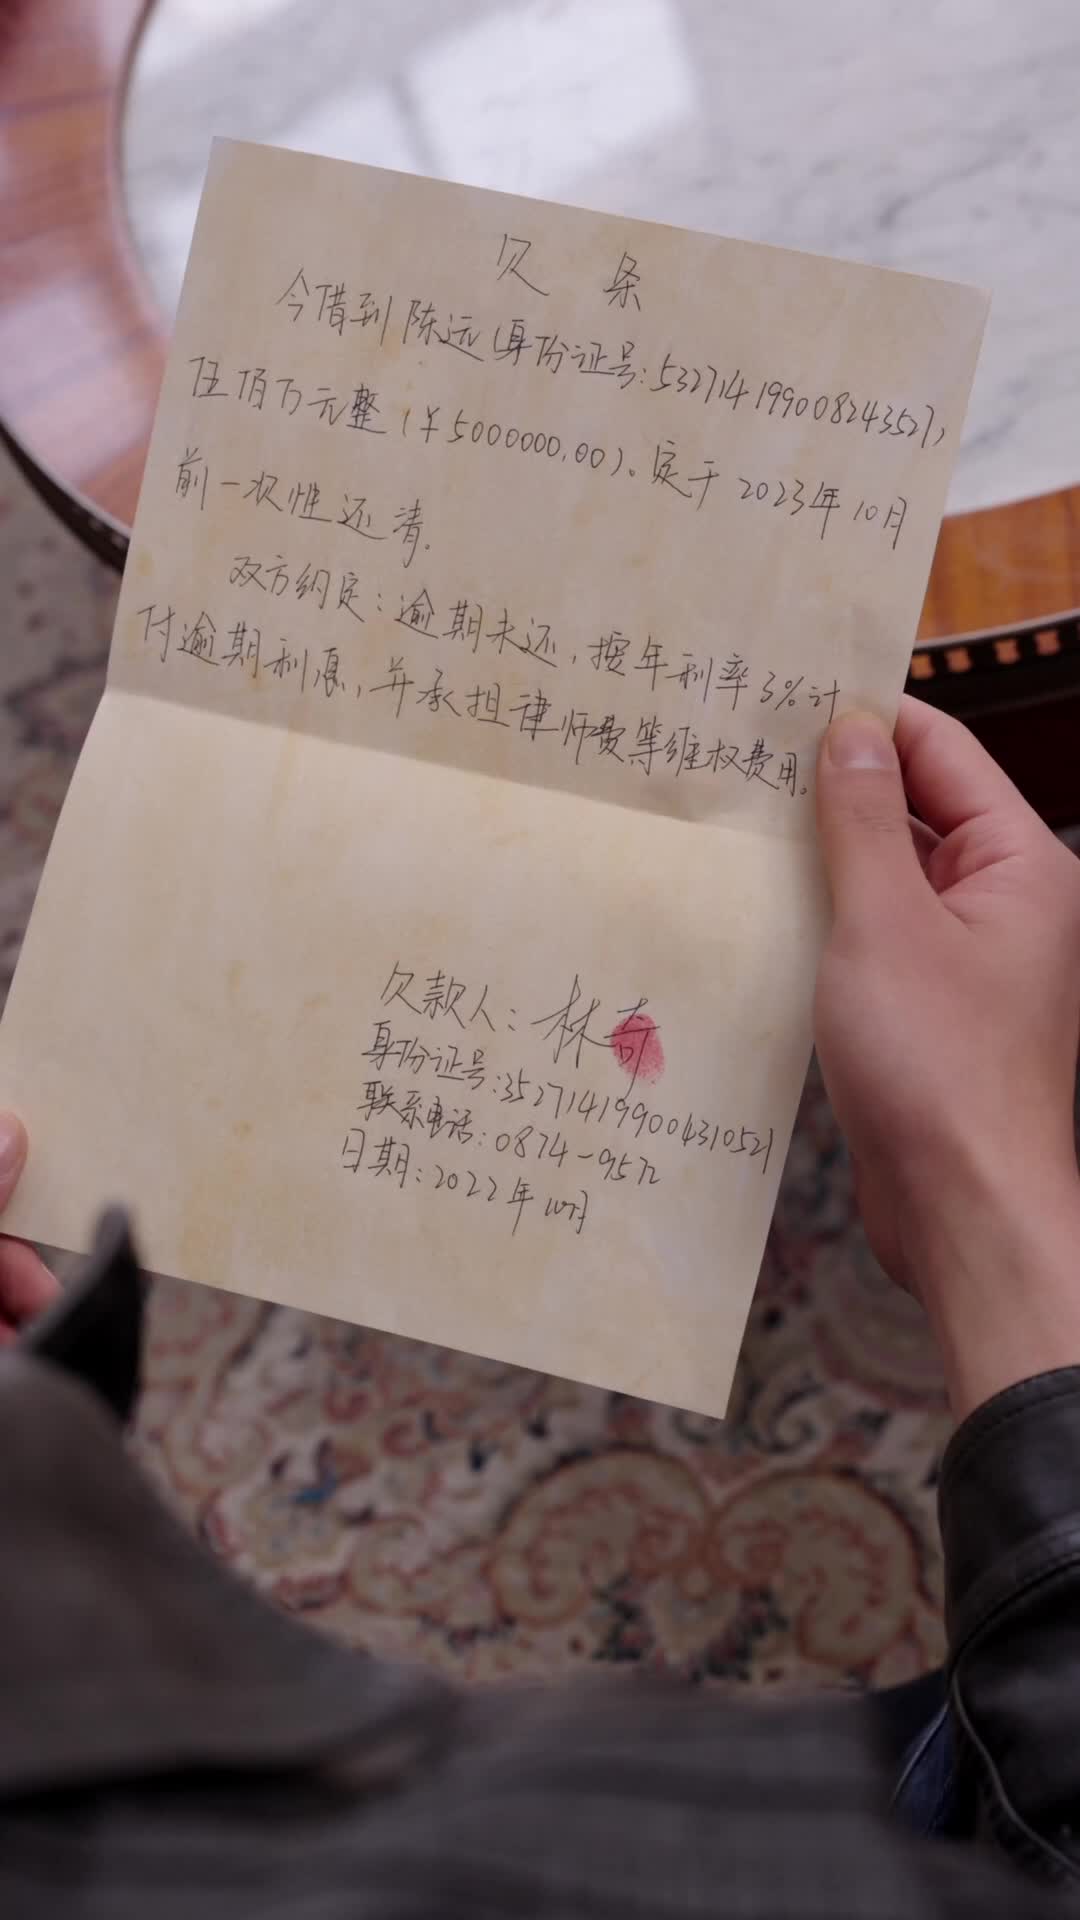 欠 条
今借到陈远(身份证号:532714199008243527)
伍佰万元整(¥5000000.00)。定于2023年10月
前一次性还清。
双方约定:逾期未还,按年利率3%计
付逾期利息,并承担律师费等维权费用。
欠款人:林奇
身份证号:352714199004310521
联系电话:0874-9572
日期:2022年10月